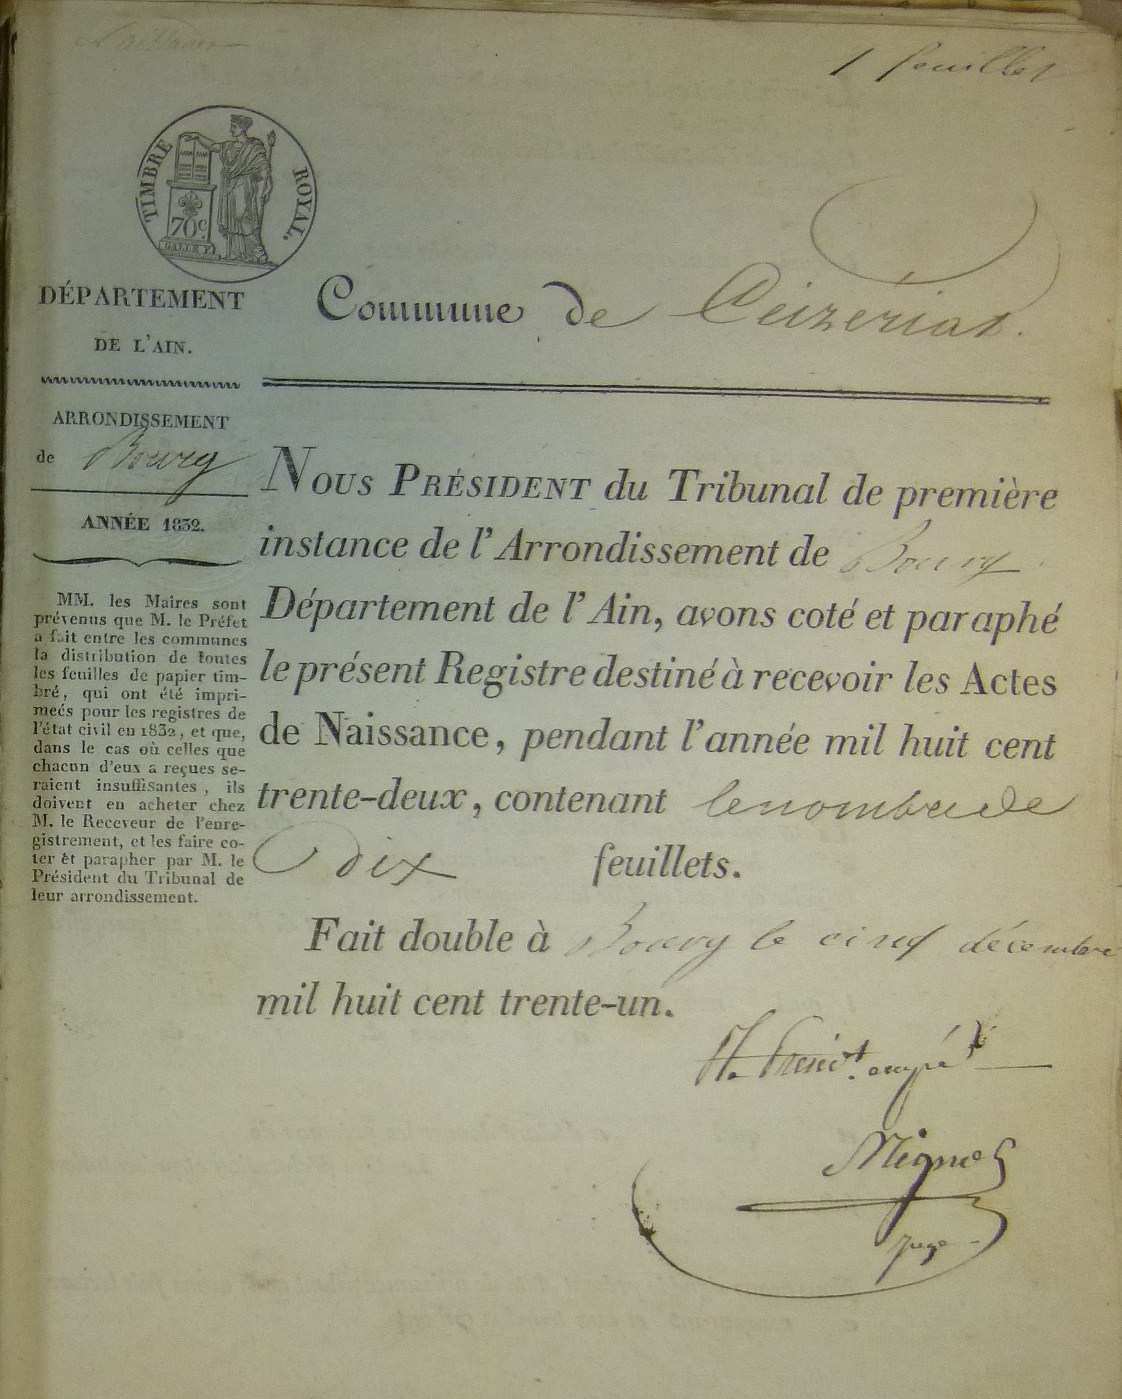 1 feuillet
TIMBRE ROYAL.
70c
DÉPARTEMENT
DE L'AIN.
Commune de Ceizériat.
ARRONDISSEMENT
de Bourg
ANNÉE 1832.
MM. les Maires sont
prévenus que M. le Préfet
a fait entre les communes
la distribution de toutes
les feuilles de papier tim-
bré, qui ont été impri-
meés pour les registres de
l'état civil en 1832, et que,
dans le cas où celles que
chacun d'eux a reçues se-
raient insuffisantes, ils
doivent en acheter chez
M. le Receveur de l'enre-
gistrement, et les faire co-
ter et parapher par M. le
Président du Tribunal de
leur arrondissement.
NOUS PRÉSIDENT du Tribunal de première
instance de l'Arrondissement de Bourg
Département de l'Ain, avons coté et paraphé
le présent Registre destiné à recevoir les Actes
de Naissance, pendant l'année mil huit cent
trente-deux, contenant le nombre de
dix feuillets.
Fait double à Bourg le cinq décembre
mil huit cent trente-un.
empé
juge